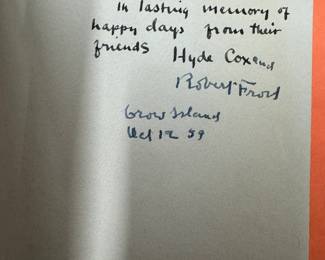 In lasting memory of
happy days from their
friends Hyde Cox and
Robert Frost
Crow Island
Oct 12 59